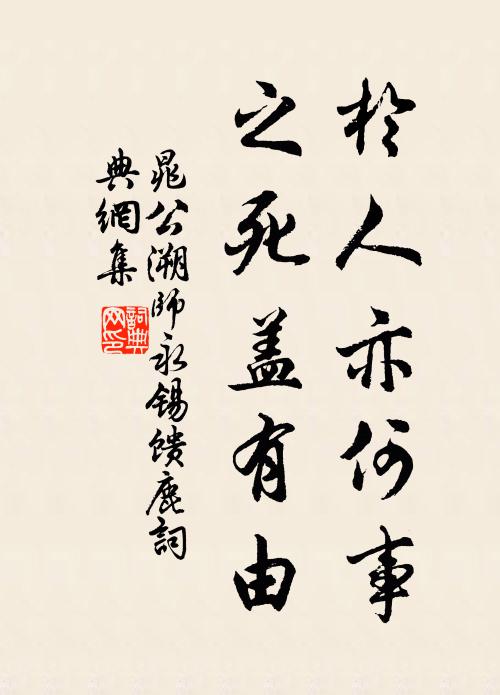 於人亦何事
之死盖有由
晁公溯師永锡馈鹿詞
典網集
詞典网印